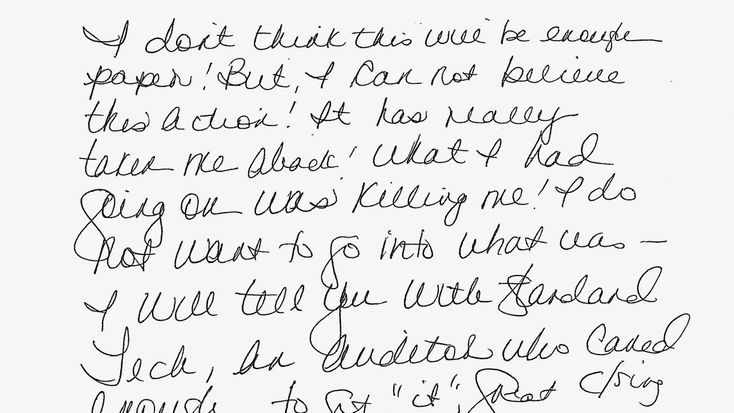 I don't think this will be enough
paper! But, I can not believe
this action! It has really
taken me aback! What I had
going on was killing me! I do
not want to go into what was —
I will tell you with Standard
Tech, an Auditor who cared
enough to get "it", great